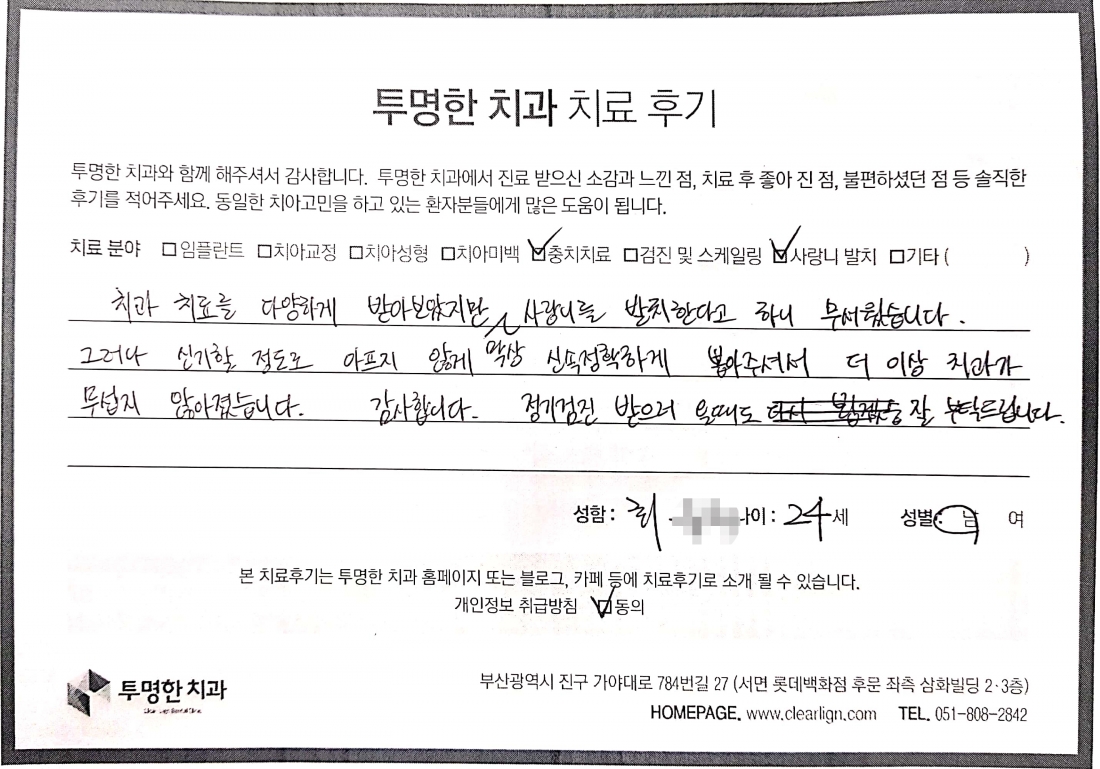 투명한 치과 치료 후기
투명한 치과와 함께 해주셔서 감사합니다. 투명한 치과에서 진료 받으신 소감과 느낀 점, 치료 후 좋아 진 점, 불편하셨던 점 등 솔직한
후기를 적어주세요. 동일한 치아고민을 하고 있는 환자분들에게 많은 도움이 됩니다.
치료 분야 □임플란트 □치아교정 □치아성형 □치아미백 ☑충치치료 □검진 및 스케일링 ☑사랑니 발치 □기타 ( )
치과 치료를 다양하게 받아보았지만 사랑니를 발치한다고 하니 무서웠습니다.
그러나 신기할 정도로 아프지 않게 막상 신속정확하게 뽑아주셔서 더 이상 치과가
무섭지 않아졌습니다. 감사합니다. 정기검진 받으러 올때도 잘 부탁드립니다.
성함: 나이: 24세 성별: 남 여
본 치료후기는 투명한 치과 홈페이지 또는 블로그, 카페 등에 치료후기로 소개 될 수 있습니다.
개인정보 취급방침 ☑동의
투명한 치과
부산광역시 진구 가야대로 784번길 27 (서면 롯데백화점 후문 좌측 삼화빌딩 2·3층)
HOMEPAGE. www.clearlign.com TEL. 051-808-2842